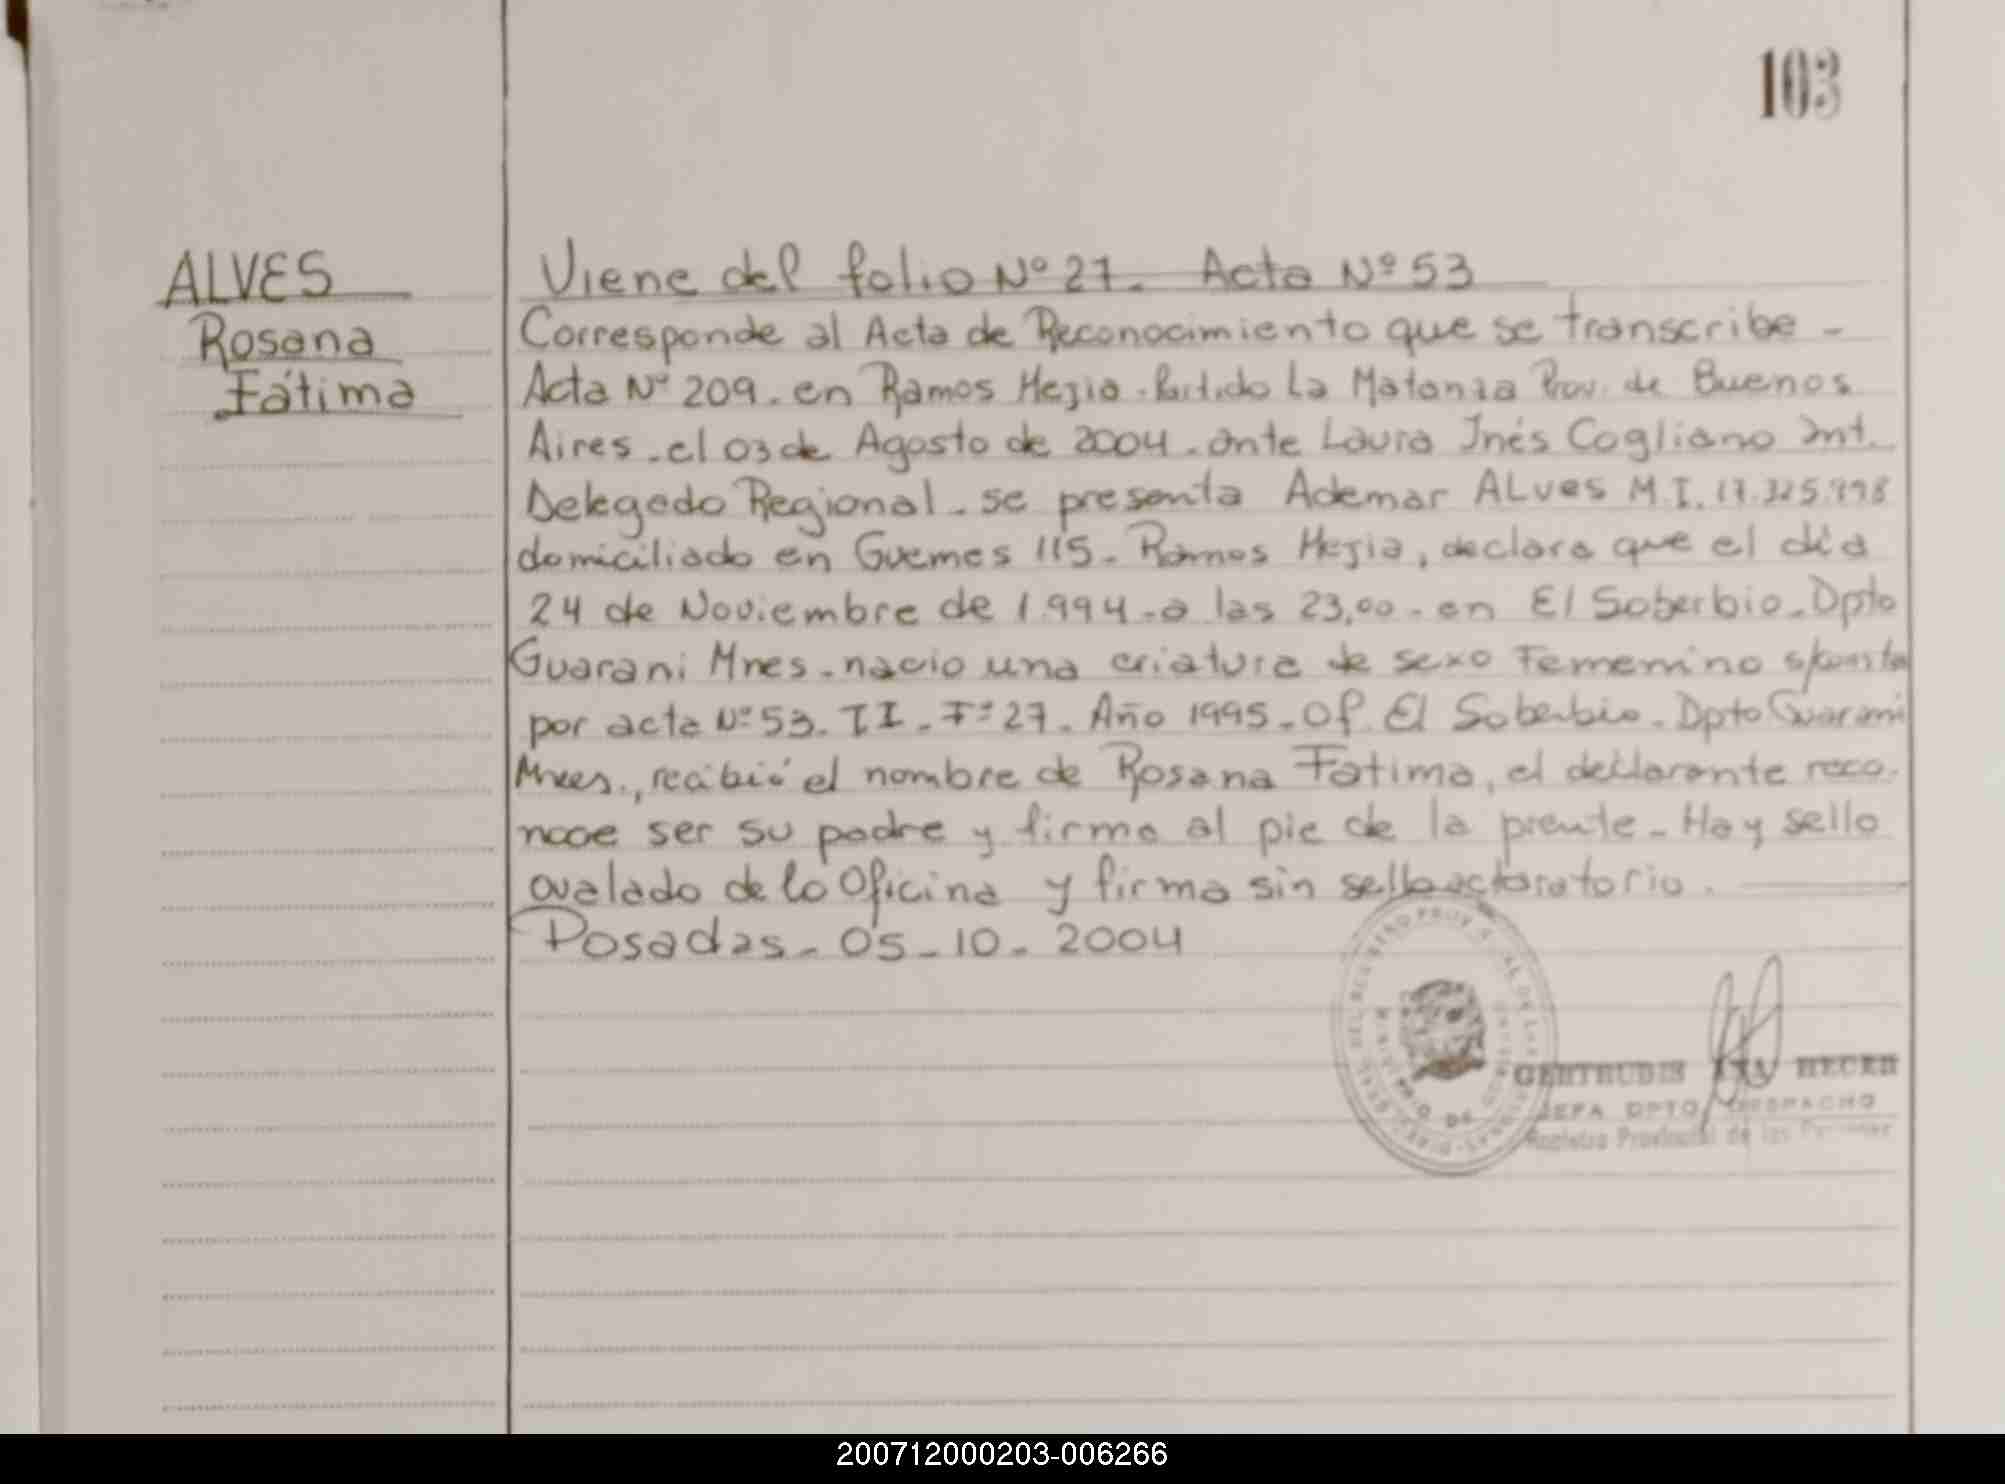 103
ALVES
Rosana
Fátima
Viene del folio Nº 27. Acta Nº 53
Corresponde al Acta de Reconocimiento que se transcribe -
Acta Nº 209. en Ramos Mejia - Partido La Matanza Prov. de Buenos
Aires - el 03 de Agosto de 2004 - ante Laura Inés Cogliano Int.
Delegado Regional - se presenta Ademar ALves M.I.
domiciliado en Guemes 115 - Ramos Mejia, declara que el día
24 de Noviembre de 1.994 - a las 23,00 - en El Soberbio - Dpto
Guarani Mnes - nacio una criatura de sexo Femenino s/consta
por acta Nº 53. TI - Fº 27 - Año 1995 - Of. El Soberbio - Dpto Guarani
Mnes., recibió el nombre de Rosana Fatima, el declarante reco-
noce ser su padre y firma al pie de la prente - Hay sello
ovalado de la Oficina y firma sin sello aclaratorio.
Posadas - 05 - 10 - 2004
GERTRUDIS
JEFA DPTO DESPACHO
Registro Provincial de las Personas
200712000203-006266